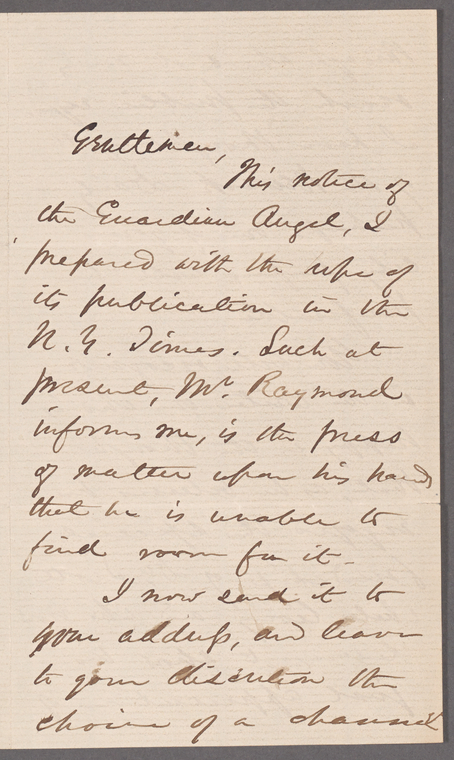 Gentlemen,
This notice of
the Guardian Angel, I
prepared with the hope of
its publication in the
N. Y. Times. Such at
present, Mr. Raymond
informs me, is the press
of matter upon his hands
that he is unable to
find room for it.
I now send it to
your address, and leave
to your discretion the
choice of a channel